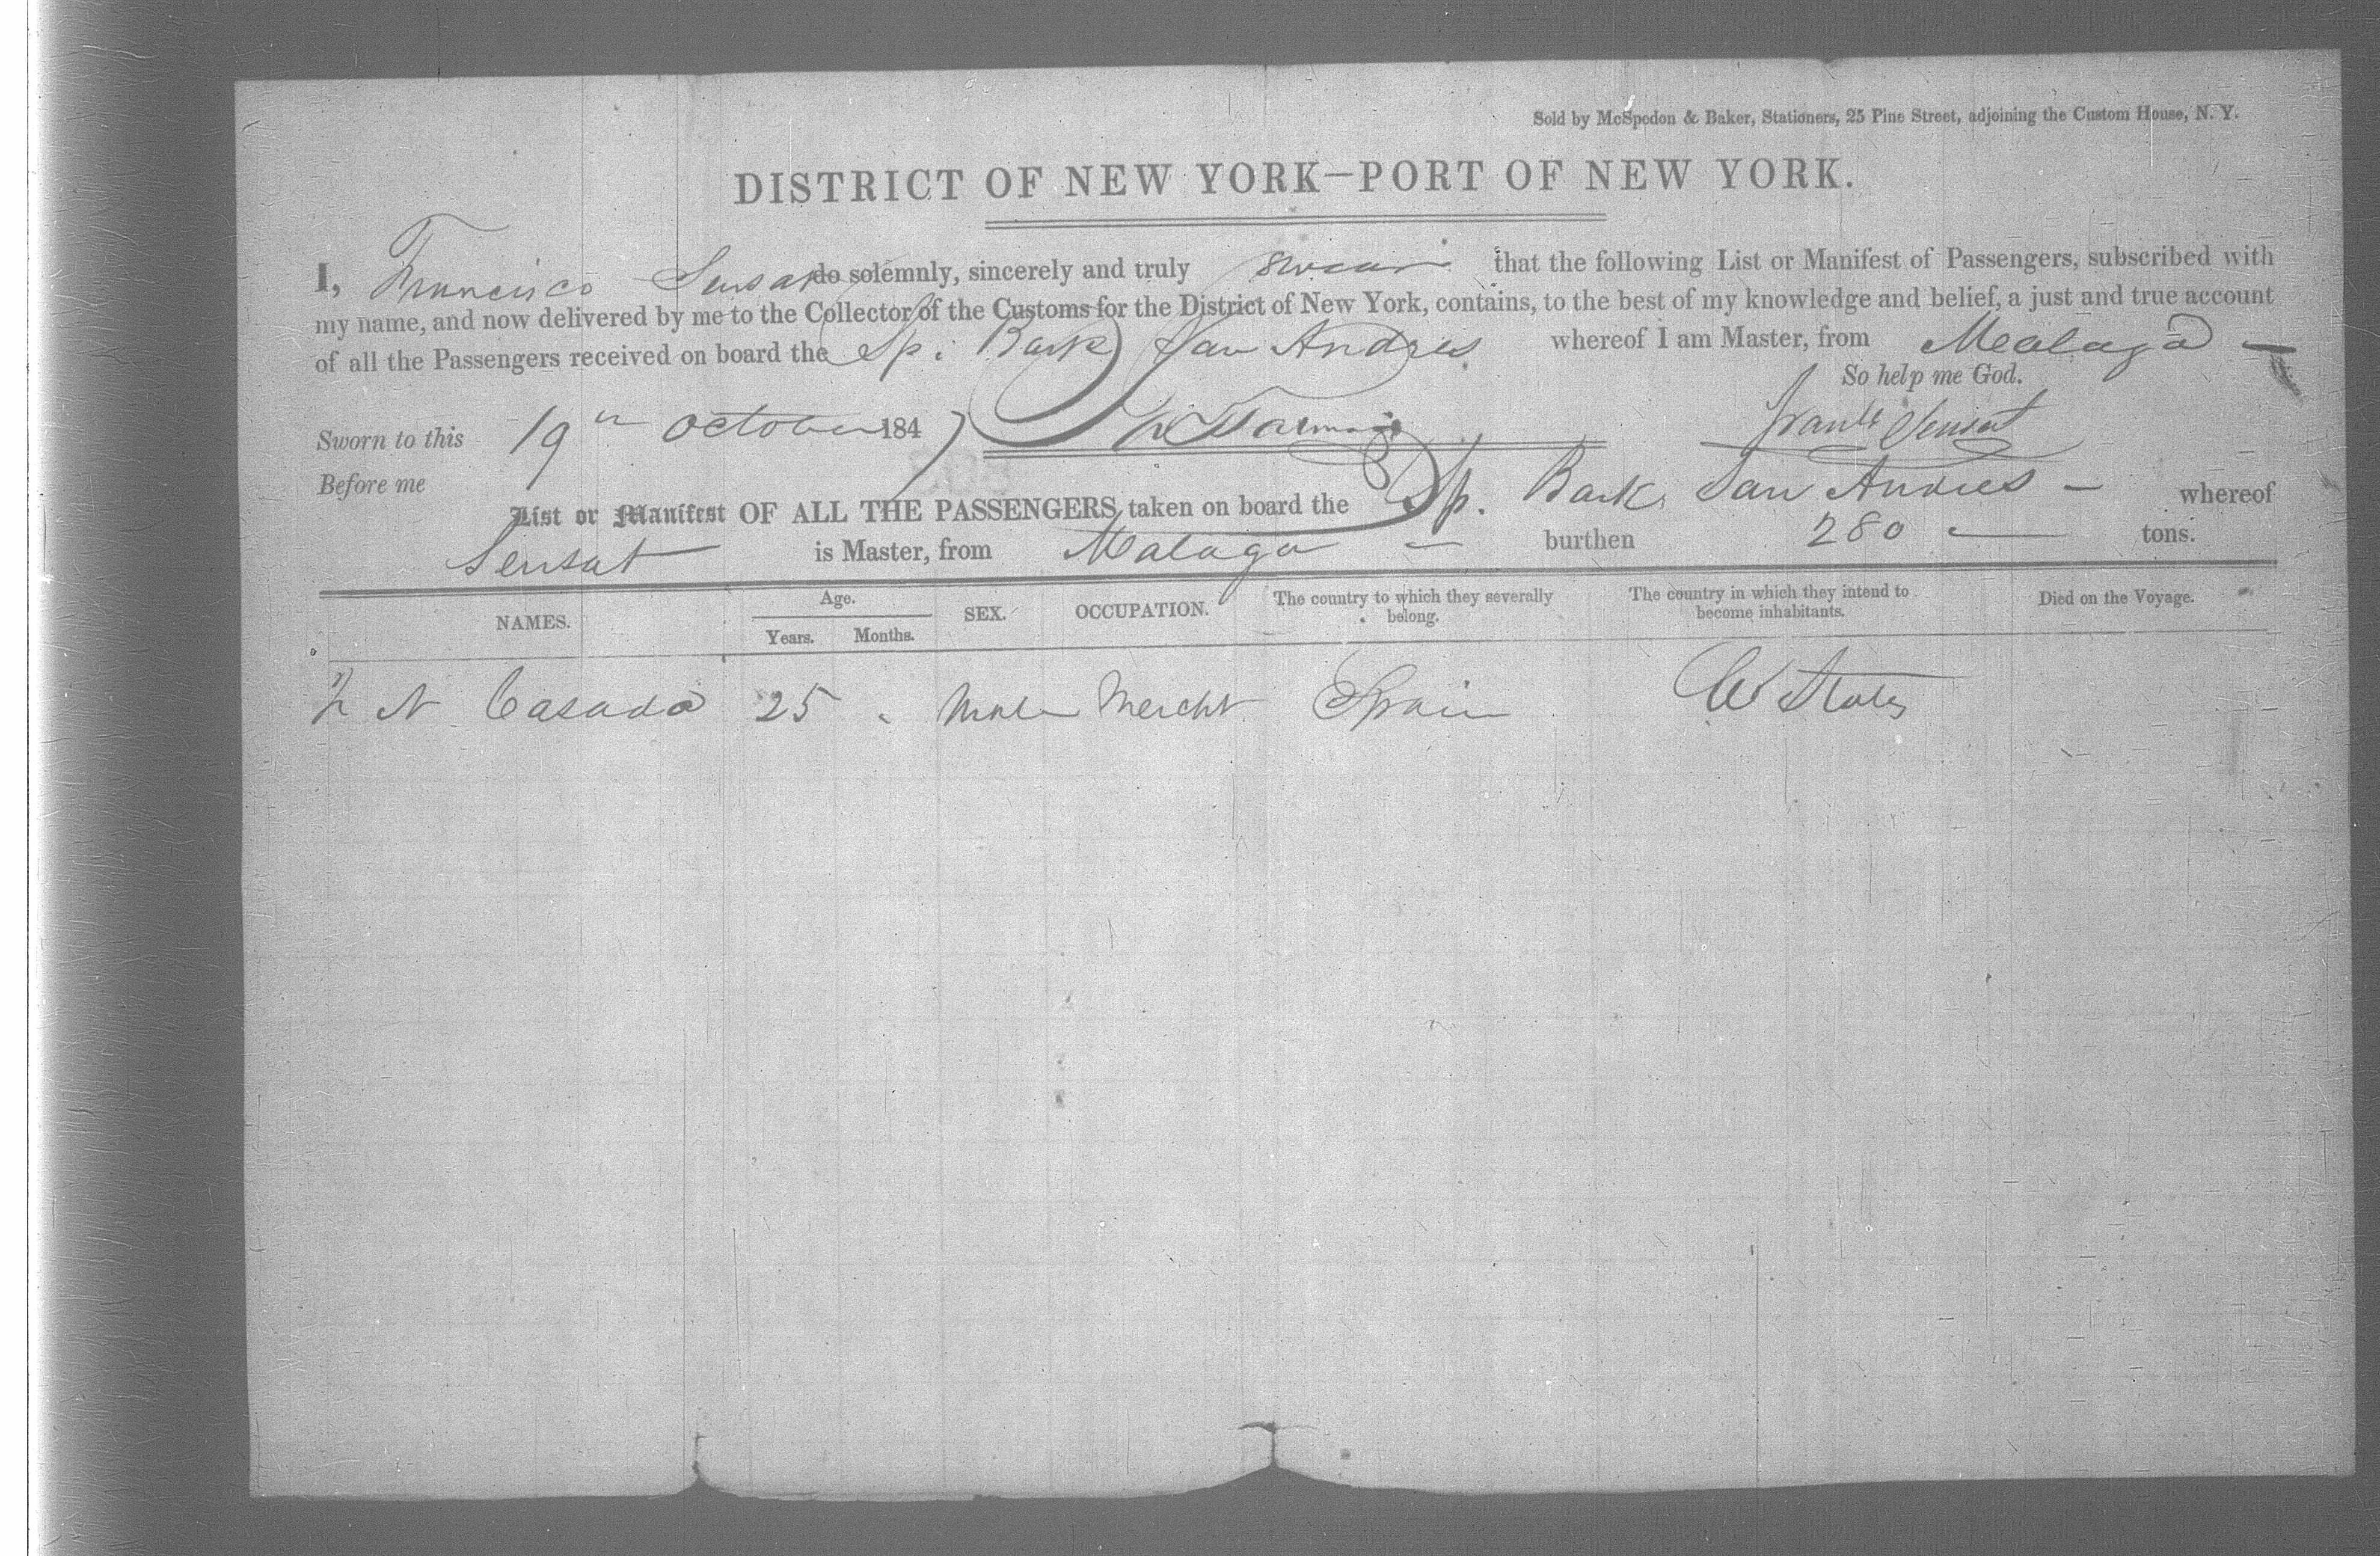 Sold by McSpedon & Baker, Stationers, 25 Pine Street, adjoining the Custom House, N. Y.
DISTRICT OF NEW YORK—PORT OF NEW YORK.
I, Francisco Sensat do solemnly, sincerely and truly swear that the following List or Manifest of Passengers, subscribed with
my name, and now delivered by me to the Collector of the Customs for the District of New York, contains, to the best of my knowledge and belief, a just and true account
of all the Passengers received on board the Sp. Bark San Andres whereof I am Master, from Malaga
So help me God.
Sworn to this 19th October 1847 Franco Sensat
Before me
List or Manifest OF ALL THE PASSENGERS taken on board the Sp. Bark San Andres — whereof
Sensat is Master, from Malaga — burthen 280 — tons.
NAMES. Age. SEX. OCCUPATION. The country to which they severally belong. The country in which they intend to become inhabitants. Died on the Voyage.
Years. Months.
N Casado 25 Male Mercht Spain U States